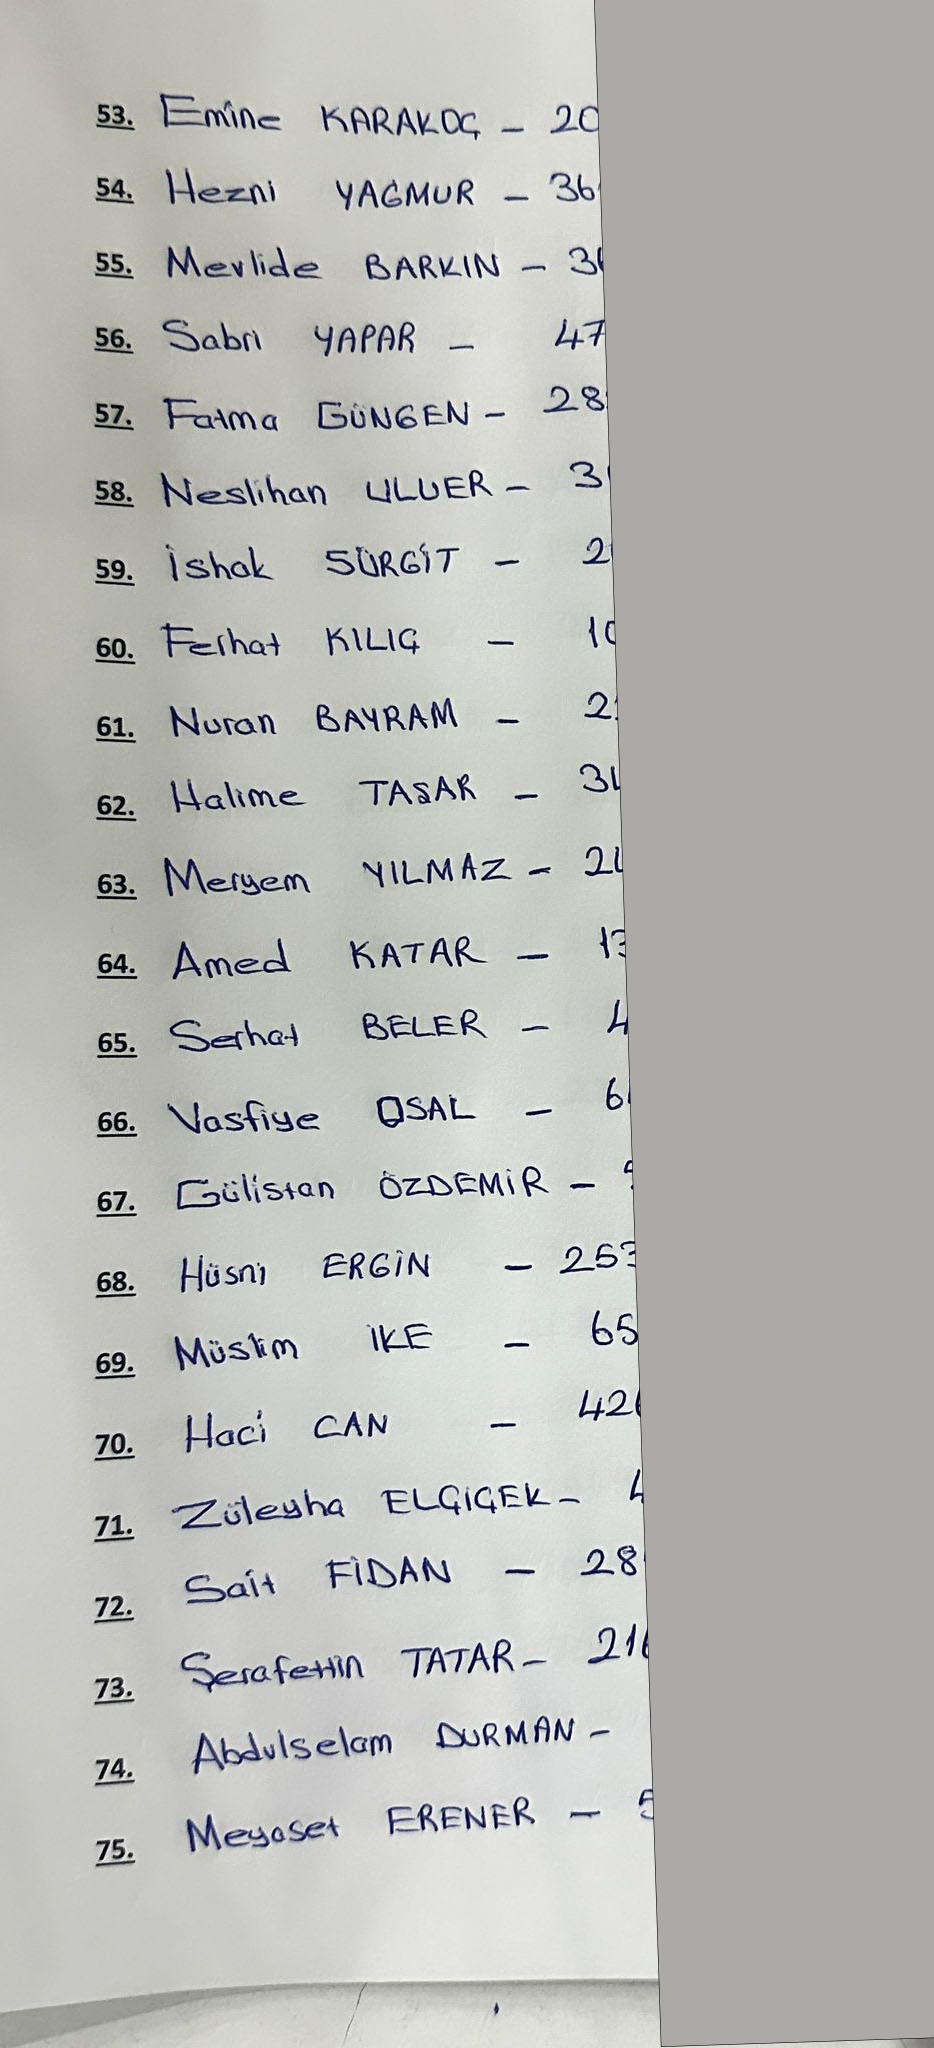 53. Emine KARAKOÇ - 20
54. Hezni YAĞMUR - 36
55. Mevlide BARKIN - 3
56. Sabri YAPAR - 47
57. Fatma GÜNGEN - 28
58. Neslihan ULUER - 3
59. İshak SÜRGİT - 2
60. Ferhat KILIÇ - 10
61. Nuran BAYRAM - 2
62. Halime TAŞAR - 3
63. Meryem YILMAZ - 2
64. Amed KATAR - 13
65. Serhat BELER - 4
66. Vasfiye OSAL - 6
67. Gülistan ÖZDEMİR -
68. Hüsni ERGİN - 253
69. Müslim İKE - 65
70. Haci CAN - 42
71. Züleyha ELÇİÇEK - 4
72. Sait FİDAN - 28
73. Şerafettin TATAR - 21
74. Abdulselam DURMAN -
75. Meyaset ERENER - 5